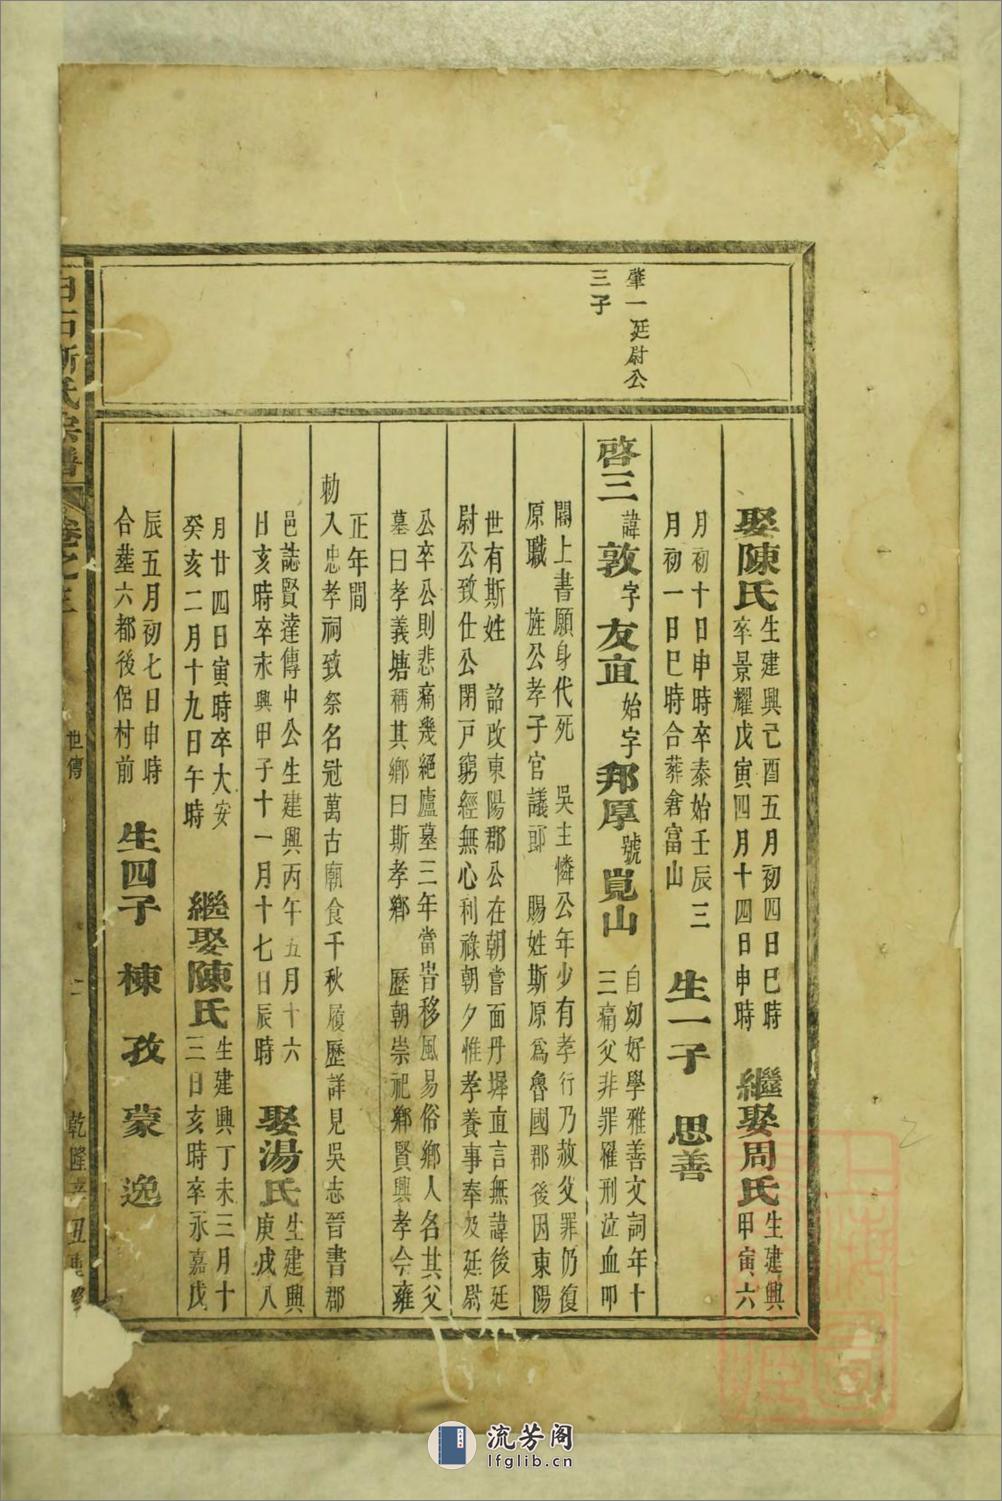 肇一廷尉公
三子
娶陳氏
生建興己酉五月初四日巳時
卒景耀戊寅四月十四日申時
繼娶周氏
生建興
甲寅六
月初十日申時卒泰始壬辰三
月初一日巳時合葬倉富山
生一子 思善
啓三
諱敦字友直始字邦厚號崑山
自幼好學雅善文詞年十
三痛父非罪罹刑泣血叩
閽上書願身代死 吳主憐公年少有孝行乃赦父罪仍復
原職 旌公孝子官議郎 賜姓斯原為魯國郡後因東陽
世有斯姓 詔改東陽郡公在朝嘗面丹墀直言無諱後廷
尉公致仕公閉戶窮經無心利祿朝夕惟孝養事奉及廷尉
公卒公則悲痛幾絕廬墓三年當旹移風易俗鄉人名其父
墓曰孝義塘稱其鄉曰斯孝鄉 歷朝崇祀鄉賢興孝今雍
正年間
勅入忠孝祠致祭名冠萬古廟食千秋履歷詳見吳志晉書郡
邑誌賢達傳中公生建興丙午五月十六
日亥時卒永興甲子十一月十七日辰時
娶湯氏
生建興
庚戌八
月廿四日寅時卒大安
癸亥二月十九日午時
繼娶陳氏
生建興丁未三月十
三日亥時卒永嘉戊
辰五月初七日申時
合塟六都後侣村前
生四子 棟 孜 蒙 逸
白石斯氏宗譜
卷之三
世傳
二
乾隆辛丑重
流芳阁
lfglib.cn